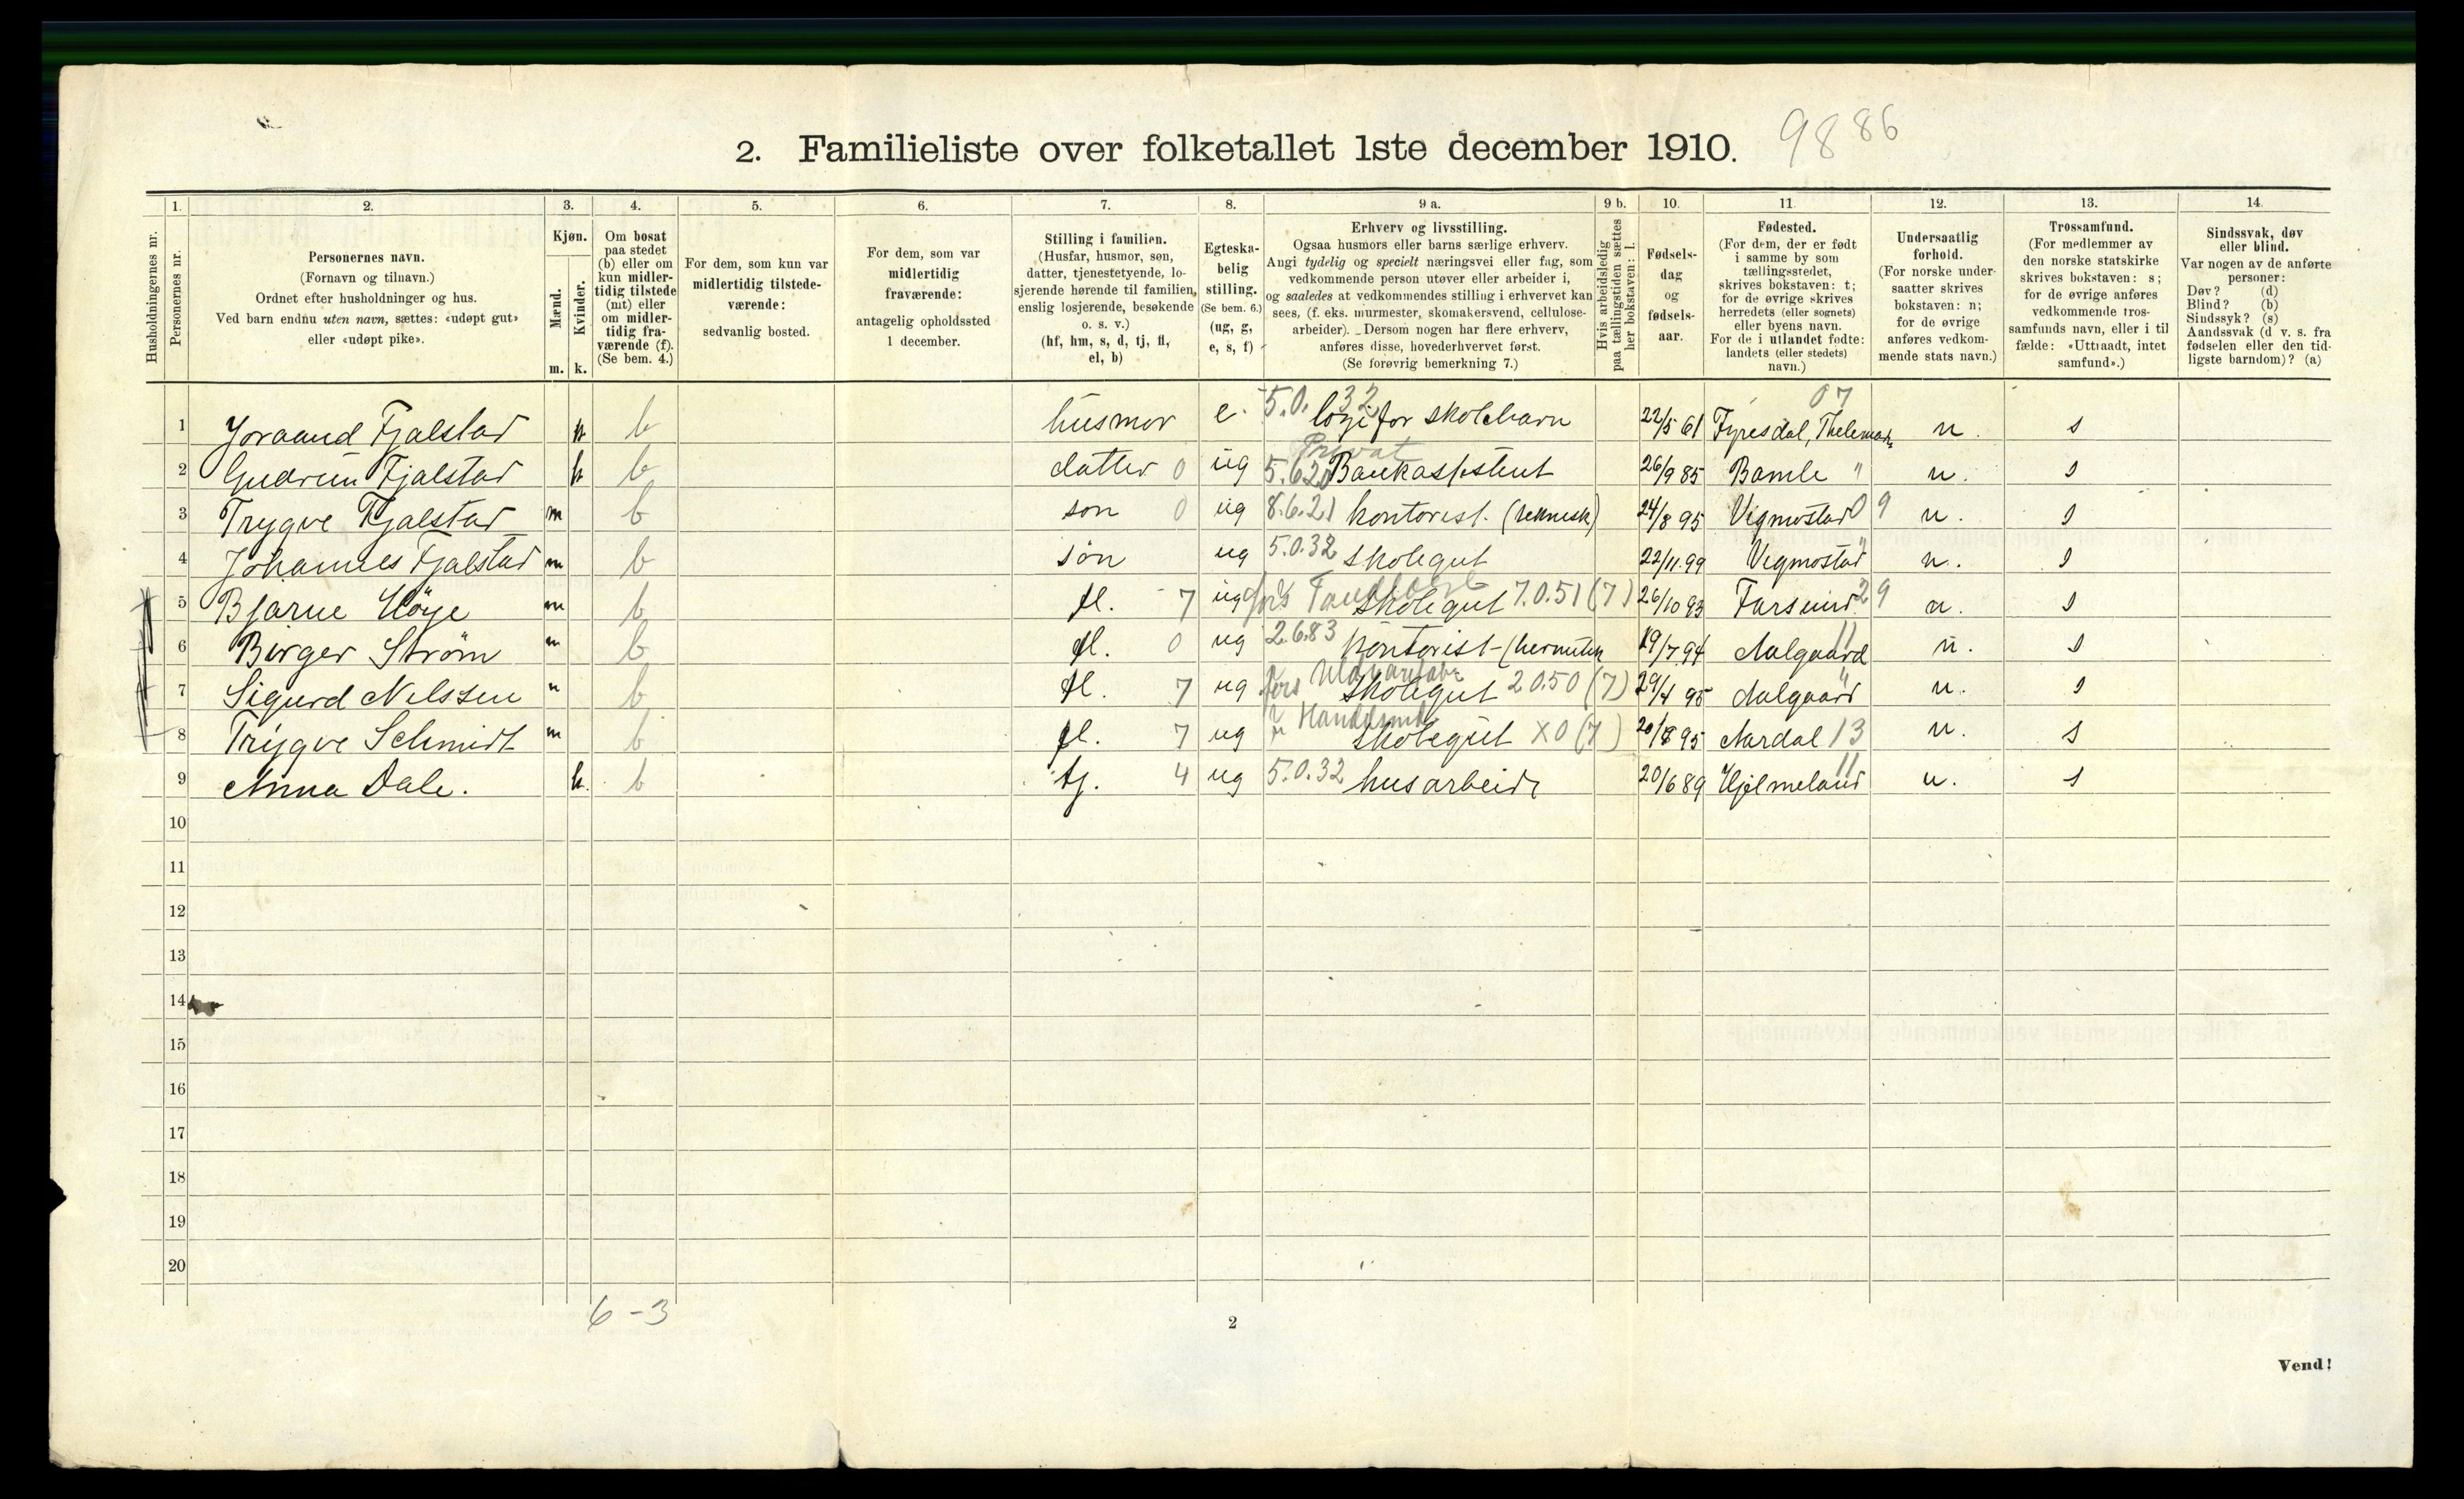 2. Familieliste over folketallet 1ste december 1910. 9886
1. 2. 3. 4. 5. 6. 7. 8. 9 a. 9 b. 10. 11. 12. 13. 14.
Husholdningernes nr.
Personernes nr.
Personernes navn.
(Fornavn og tilnavn.)
Ordnet efter husholdninger og hus.
Ved barn endnu uten navn, sættes: «udøpt gut»
eller «udøpt pike».
Kjøn.
Mænd.
Kvinder.
m. k.
Om bosat
paa stedet
(b) eller om
kun midler-
tidig tilstede
(mt) eller
om midler-
tidig fra-
værende (f).
(Se bem. 4.)
For dem, som kun var
midlertidig tilstede-
værende:
sedvanlig bosted.
For dem, som var
midlertidig
fraværende:
antagelig opholdssted
1 december.
Stilling i familien.
(Husfar, husmor, søn,
datter, tjenestetyende, lo-
sjerende hørende til familien,
enslig losjerende, besøkende
o. s. v.)
(hf, hm, s, d, tj, fl,
el, b)
Egteska-
belig
stilling.
(Se bem. 6.)
(ug, g,
e, s, f)
Erhverv og livsstilling.
Ogsaa husmors eller barns særlige erhverv.
Angi tydelig og specielt næringsvei eller fag, som
vedkommende person utøver eller arbeider i,
og saaledes at vedkommendes stilling i erhvervet kan
sees, (f. eks. murmester, skomakersvend, cellulose-
arbeider). Dersom nogen har flere erhverv,
anføres disse, hovederhvervet først.
(Se forøvrig bemerkning 7.)
Hvis arbeidsledig
paa tællingstiden sættes
her bokstaven: l.
Fødsels-
dag
og
fødsels-
aar.
Fødested.
(For dem, der er født
i samme by som
tællingsstedet,
skrives bokstaven: t;
for de øvrige skrives
herredets (eller sognets)
eller byens navn.
For de i utlandet fødte:
landets (eller stedets)
navn.)
Undersaatlig
forhold.
(For norske under-
saatter skrives
bokstaven: n;
for de øvrige
anføres vedkom-
mende stats navn.)
Trossamfund.
(For medlemmer av
den norske statskirke
skrives bokstaven: s;
for de øvrige anføres
vedkommende tros-
samfunds navn, eller i til
fælde: «Uttraadt, intet
samfund».)
Sindssvak, døv
eller blind.
Var nogen av de anførte
personer:
Døv? (d)
Blind? (b)
Sindssyk? (s)
Aandssvak (d v. s. fra
fødselen eller den tid-
ligste barndom)? (a)
07
1 Joraand Fjalstad k b husmor e. 5.0.32 logi for skolebarn 22/5 61 Fyresdal, Thelemark n. s
Privat
2 Gudrun Fjalstad k b datter 0 ug 5.620 Bankassistent 26/9 85 Bamle " n. s
3 Trygve Fjalstad m b søn 0 ug 8.6.21 kontorist (teknisk) 24/8 95 Vigmostad 09 n. s
4 Johannes Fjalstad m b søn ug 5.0.32 skolegut 22/11.99 Vegmostad " n. s
5 Bjarne Høye m b fl. 7 ug fors skolegut 7.0.51 (7) 26/10 93 Farsund 29 n. s
6 Birger Strøm m b fl. 0 ug 2.6.83 kontorist - (hermetik 19/7.94 Aalgaard 11 n. s
7 Sigurd Nilssen m b fl. 7 ug fors Uldvarefabr skolegut 2 0.50 (7) 29/4 95 Aalgaard " n. s
8 Trygve Schmidt m b fl. 7 ug skolegut X0 (7) 20/8 95 Aardal 13 n. s
9 Anna Dale. k. b tj. 4 ug 5.0.32 husarbeide 20/6 89 Hjelmeland 11 n. s
10
11
12
13
14
15
16
17
18
19
20
6 - 3
2
Vend!